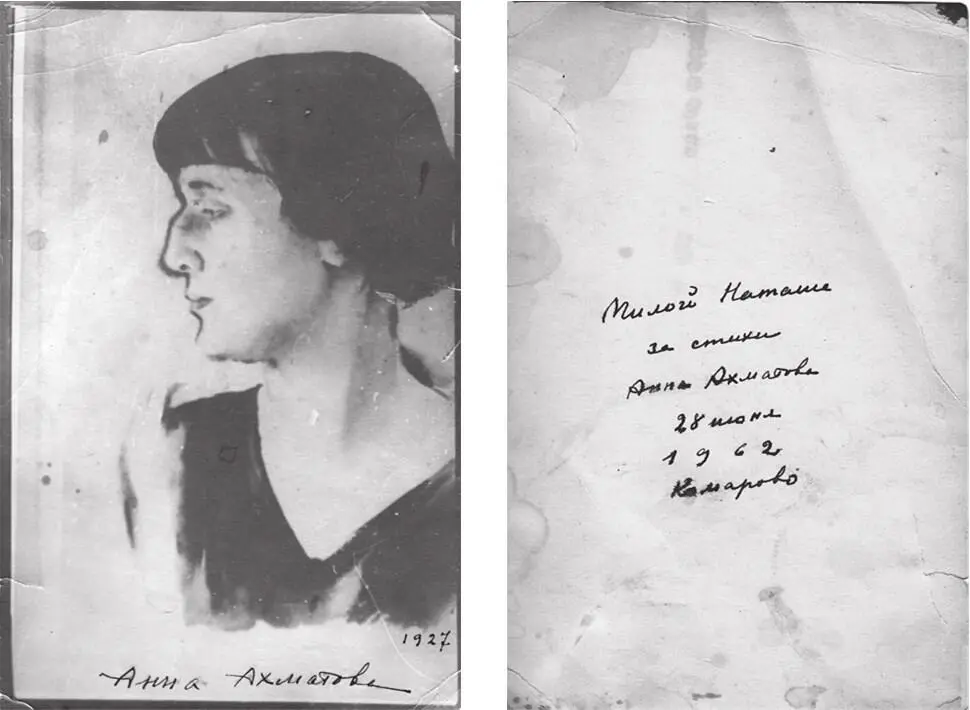 1927
Анна Ахматова
Милой Наташе
за стихи
Анна Ахматова
28 июня
1962
Комарово